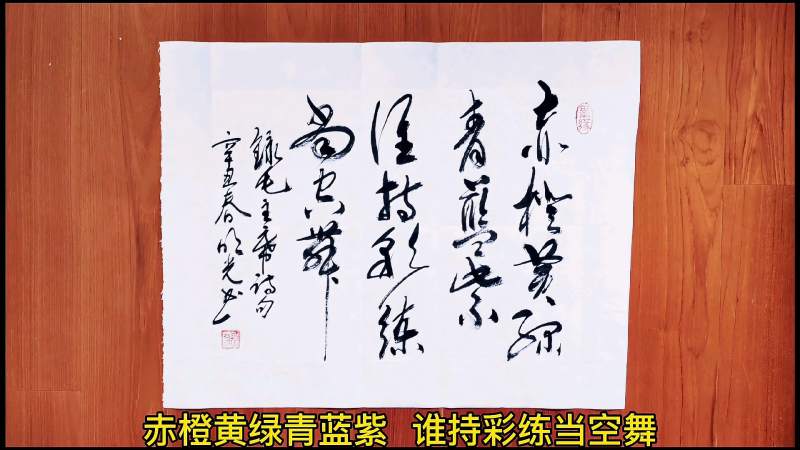 赤橙黄绿
青蓝紫
谁持彩练
當空舞
録毛主席诗句
辛丑春明光书
赤橙黄绿青蓝紫 谁持彩练当空舞